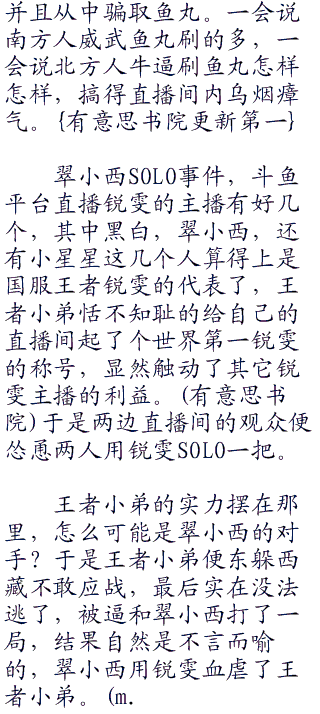 并且从中骗取鱼丸。一会说
南方人威武鱼丸刷的多，一
会说北方人牛逼刷鱼丸怎样
怎样，搞得直播间内乌烟瘴
气。{有意思书院更新第一}
翠小西SOLO事件，斗鱼
平台直播锐雯的主播有好几
个，其中黑白，翠小西，还
有小星星这几个人算得上是
国服王者锐雯的代表了，王
者小弟恬不知耻的给自己的
直播间起了个世界第一锐雯
的称号，显然触动了其它锐
雯主播的利益。(有意思书
院)于是两边直播间的观众便
怂恿两人用锐雯SOLO一把。
王者小弟的实力摆在那
里，怎么可能是翠小西的对
手？于是王者小弟便东躲西
藏不敢应战，最后实在没法
逃了，被逼和翠小西打了一
局，结果自然是不言而喻
的，翠小西用锐雯血虐了王
者小弟。(m.